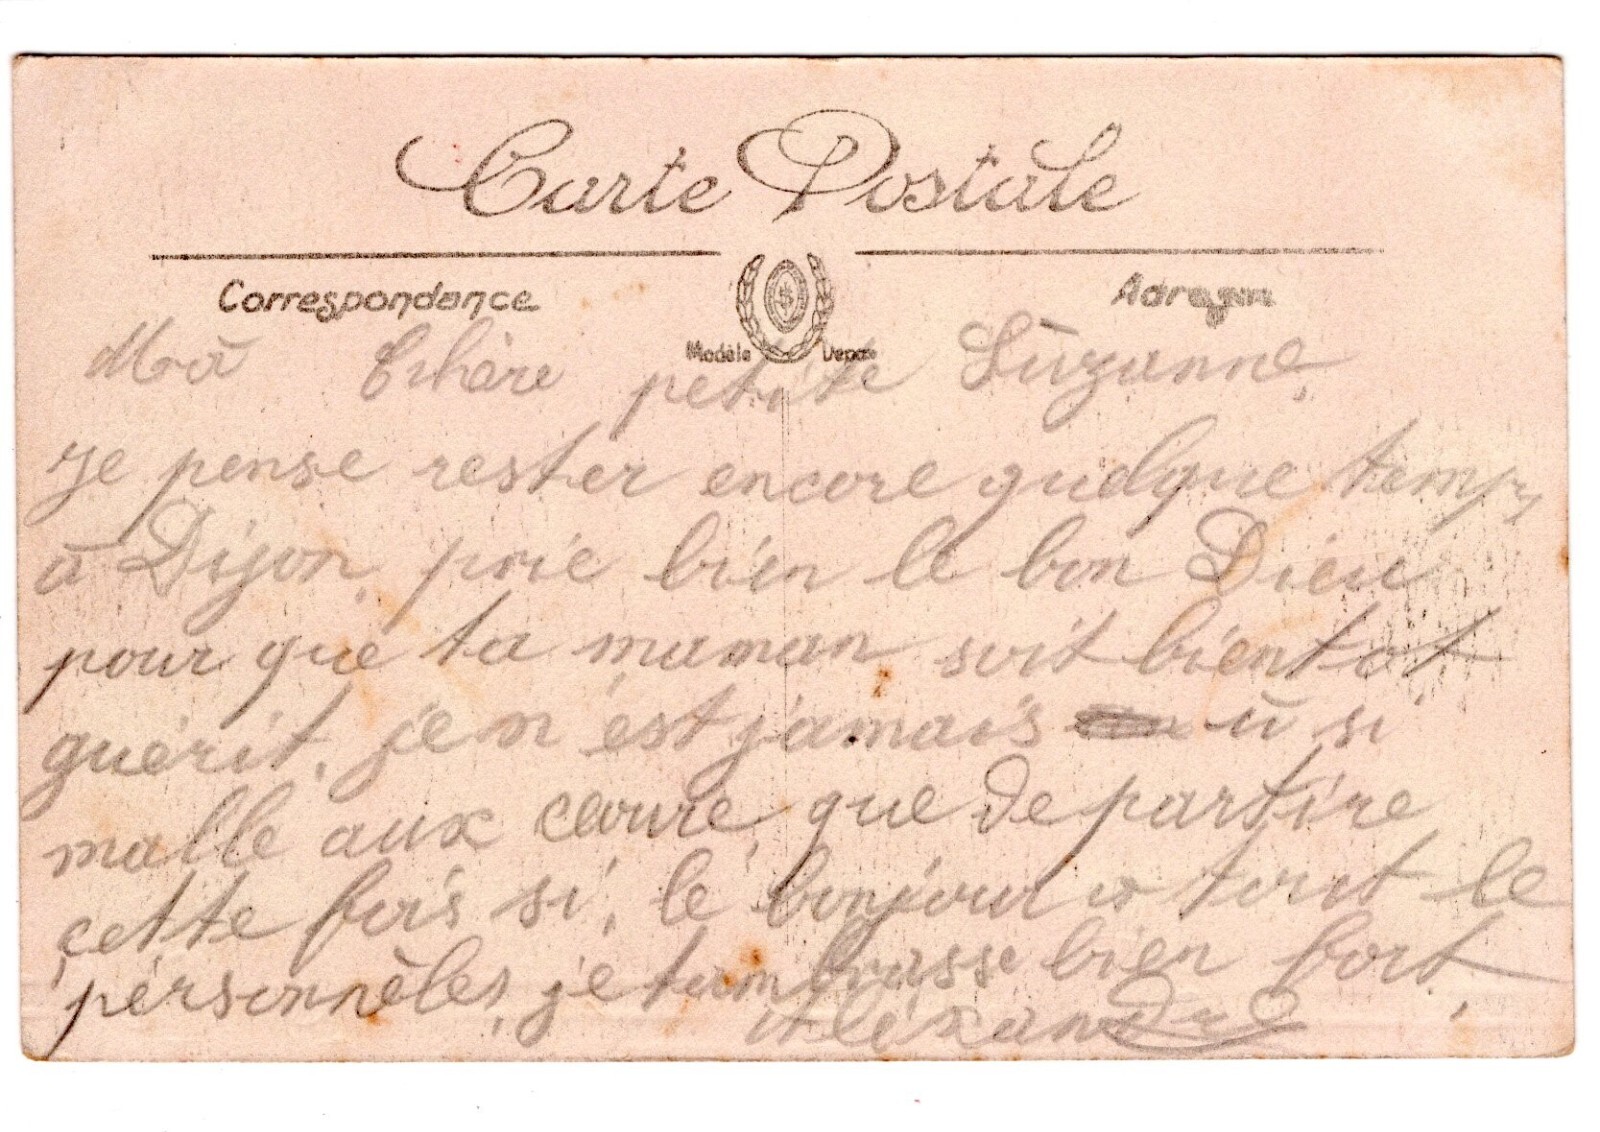 Carte Postale
Correspondance
Adresse
Modèle Déposé
Ma Chère petite Suzanne,
je pense rester encore quelque temps
à Dijon, prie bien le bon Dieu
pour que ta maman soit bientot
guérit, je n'est jamais ù si
malle aux ceoure, que de partire
cette fois si, le bonjour a tout le
personnèles, je tambrasse bien fort,
Alexandre